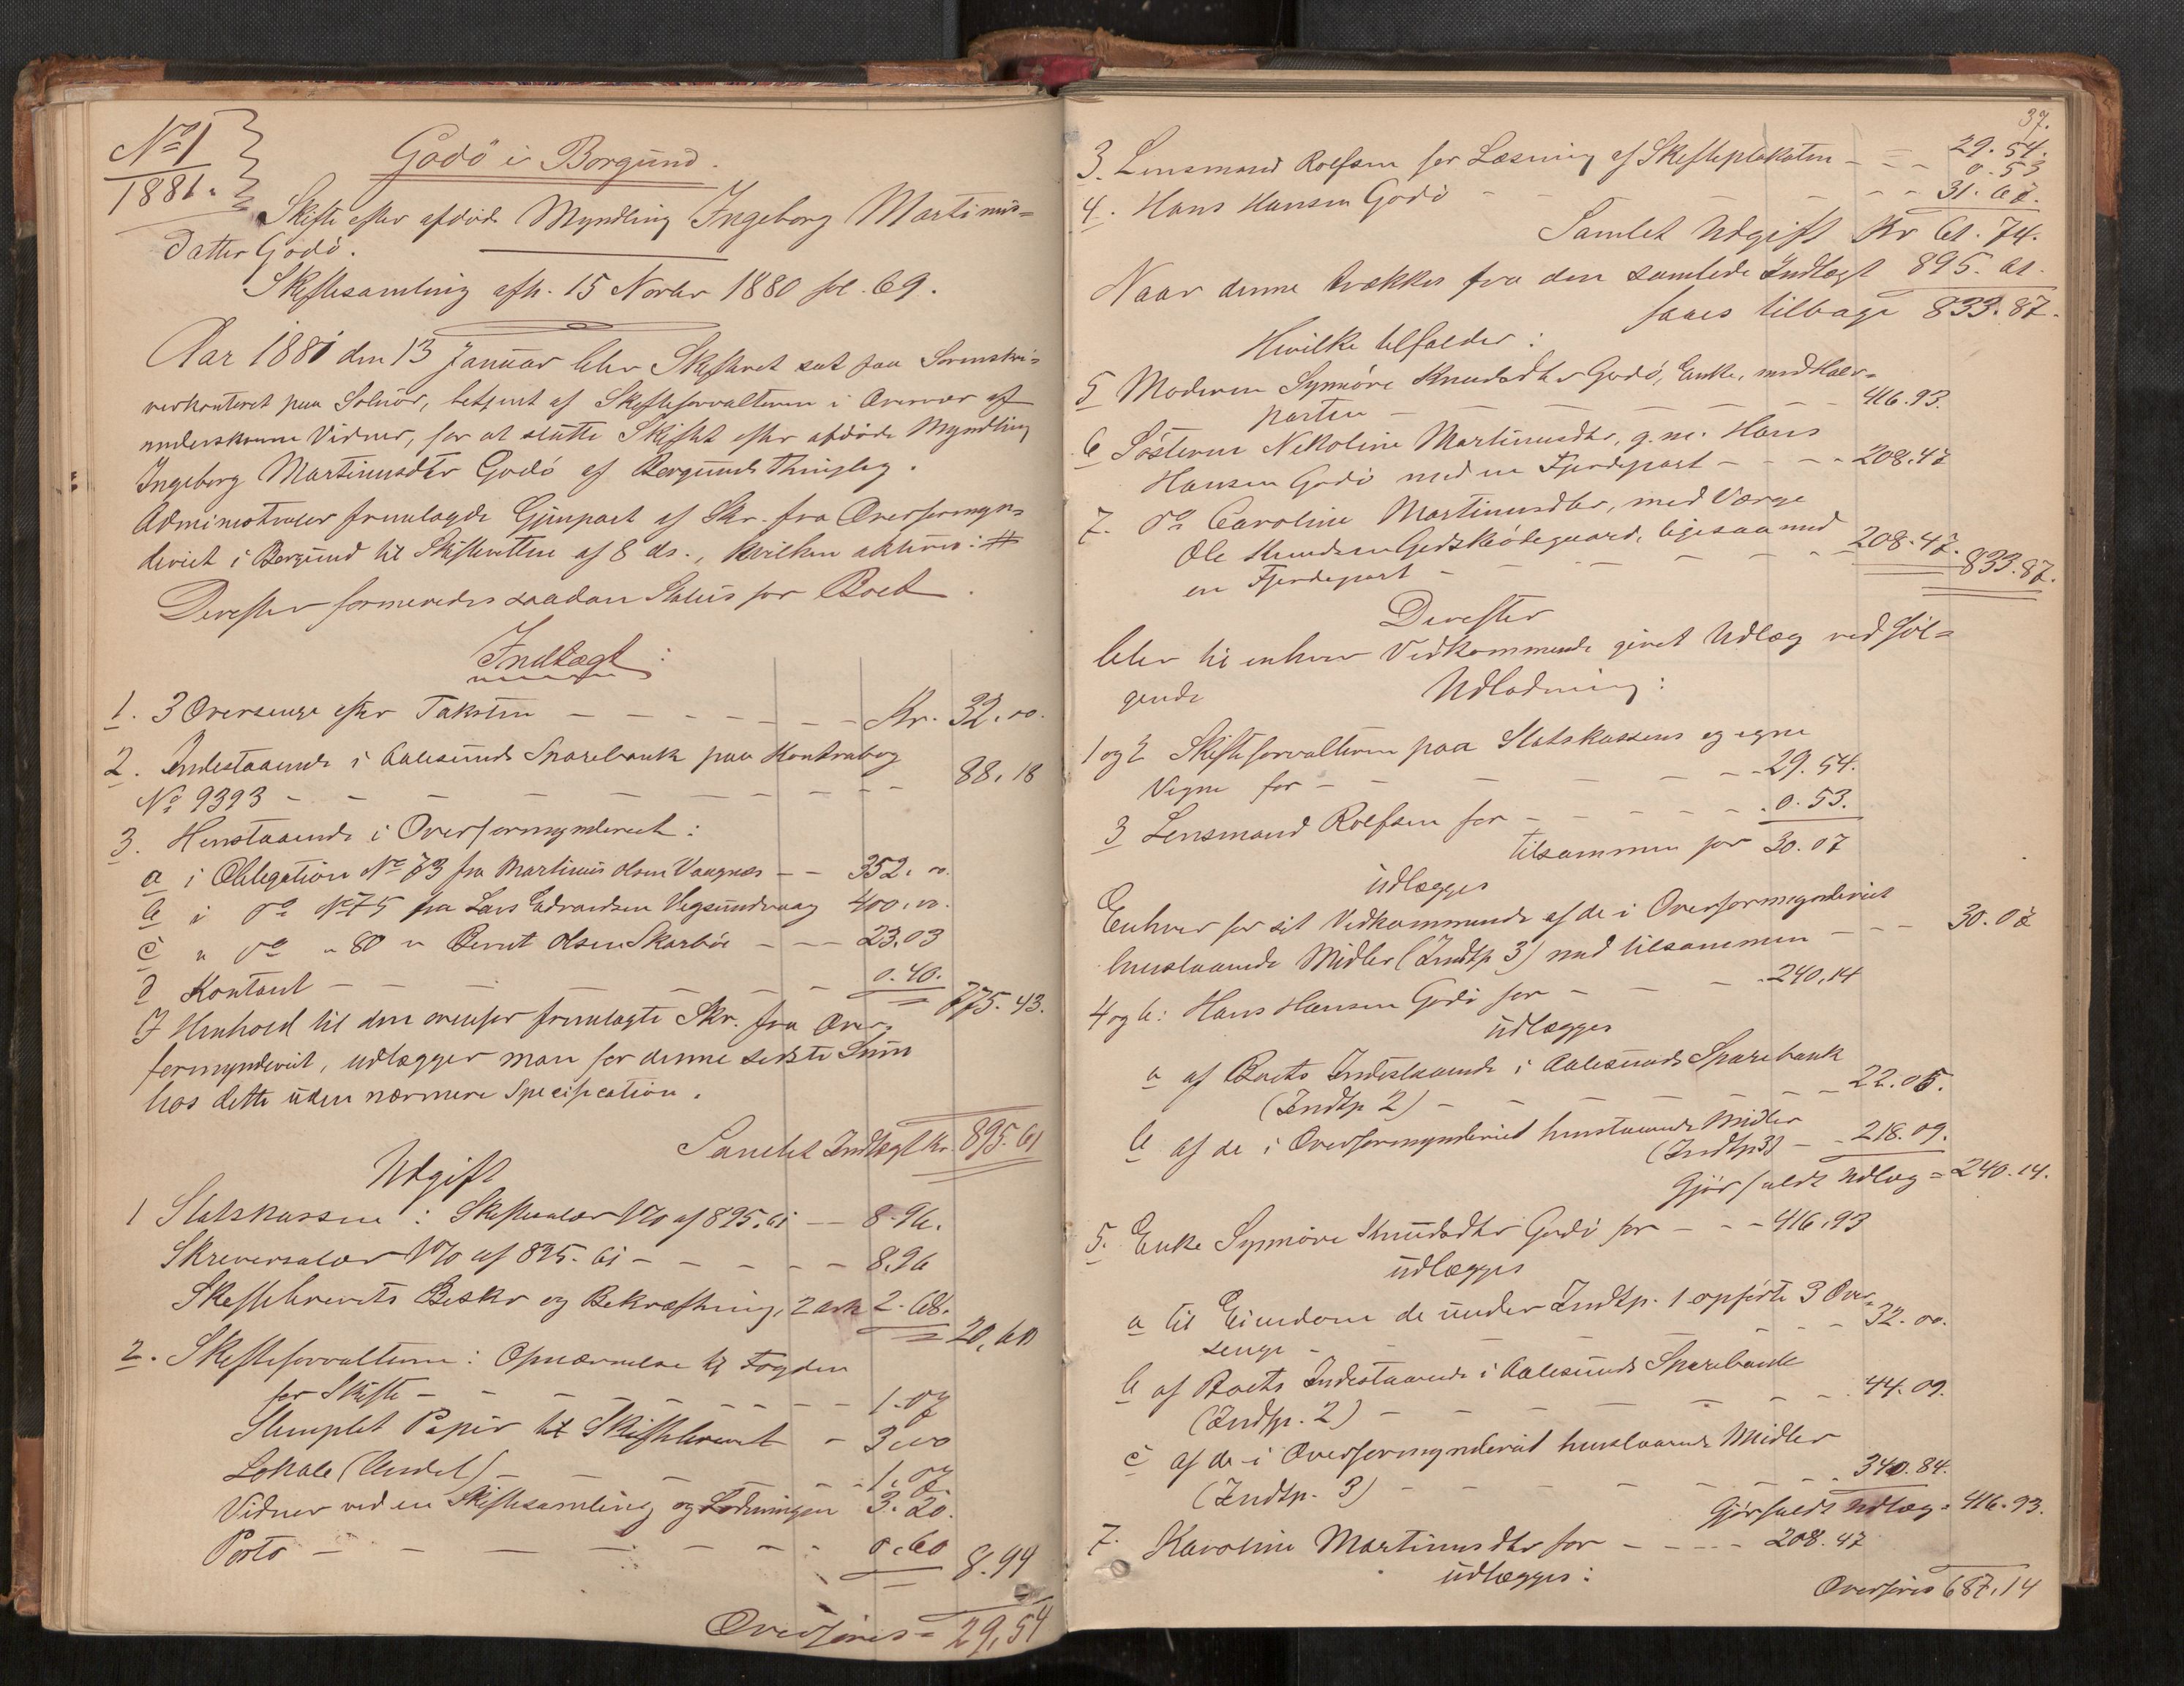 No 1
1881.
Godö i Borgund.
Skifte efter afdöde Myndling Ingeborg Martinus=
datter Godö.
Skiftesamling afh. 15 Novbr 1880 fol. 69.
Aar 1881 den 13 Januar blev Skifteret sat paa Sorenskri-
verkontoret paa Solnör, betjent af Skifteforvalteren i Overvær af
underskrevne Vidner, for at slutte Skiftet efter afdöde Myndling
Ingeborg Martinusdtr Godö af Borgunds Thinglag.
Administrator fremlagde Gjenpart af Skr. fra Overformyn-
deriet i Borgund til Skifteretten af 8 ds., hvilken aktures: #
Derefter formeredes saadan Status for Boet.
Indtægt:
1. 3 Oversenge efter Taksten - - - Kr. 32.00.
2. Indestaaende i Aalesunds Sparebank paa Kontrabog
No 9393 - - - 88.18
3. Henstaaende i Overformynderiet:
a i Obligation No 73 fra Martinus Olsen Vaagnæs - - 352.00.
b i do No 75 fra Lars Edvardsen Vegsundvaag 400.00.
c " do " 80 " Bernt Olsen Skarbö - - - 23.03
d Kontant - - - 0.40. 775.43.
I Henhold til den ovenfor fremlagte Skr. fra Over-
formynderiet, udlægger man for denne sidste Sum
hos dette uden nærmere Specification.
Samlet Indtægt Kr. 895.61
Udgift
1 Statskassen: Skiftesalær 1% af 895.61 - - 8.96.
Skriversalær 1% af 895.61 - - - 8.96
Skiftebrevets Beskr og Bekræftning, 2 ark 2.68. 20.60
2. Skifteforvalteren: Opnævnelse til Fogden
for Skifte - - - 1.07
Stemplet Papir til Skiftebrevet - 3.00
Lokale (Andel) - - - 1.07.
Vidner ved en Skiftesamling og Lodningen 3.20.
Porto - - - 0.60 8.94
Overföres = 29,54
37.
29.54.
3. Lensmand Rolfsen for Læsning af Skifteplakaten - - - 0.53
4. Hans Hansen Godö - - - 31.67.
Samlet Udgift Kr 61.74.
Naar denne trækkes fra den samlede Indtægt 895.61.
faaes tilbage 833.87.
Hvilke tilfalder:
5 Moderen Synnöve Knudsdtr Godö, Enke, med Halv-
parten - - - 416.93.
6 Sösteren Nikoline Martinusdtr, g. m. Hans
Hansen Godö med en Fjerdepart - - - 208.47
7. do Caroline Martinusdtr, med Værge
Ole Knudsen Gjedsködegaard, ligesaa med
en Fjerdepart - - - 208.47. 833.87.
Derefter
blev til enhver Vedkommende givet Udlæg ved föl-
gende Udlodning:
1 og 2 Skifteforvalteren paa Statskassens og egne
Vegne for - - - 29.54.
3 Lensmand Rolfsen for - - - 0.53.
tilsammen for 30.07
udlægges
Enhver for sit Vedkommende af de i Overformynderiet
henstaaende Midler (Indtp 3) med tilsammen - - - 30.07
4 og 6: Hans Hansen Godö for - - - 240.14
udlægges
a af Boets Indestaaende i Aalesunds Sparebank
(Indtp 2) - - - 22.05.
b af de i Overformynderiet henstaaende Midler
(Indtp 3) - - 218.09.
Gjör fuldt Udlæg = 240.14.
5. Enke Synnöve Knudsdtr Godö for - - - 416.93
udlægges
a til Eiendom de under Indtp. 1 opförte 3 Over-
senge - - - 32.00.
b af Boets Indestaaende i Aalesunds Sparebank
(Indtp. 2) - - - 44.09.
c af de i Overformynderiet henstaaende Midler
(Indtp. 3) - - - 340.84.
Gjör fuldt Udlæg = 416.93.
7. Karoline Martinusdtr for - - - 208.47
udlægges:
Overföres 687.14